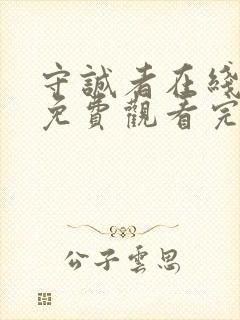 守誠者在綫
免費觀看完
公子雲思